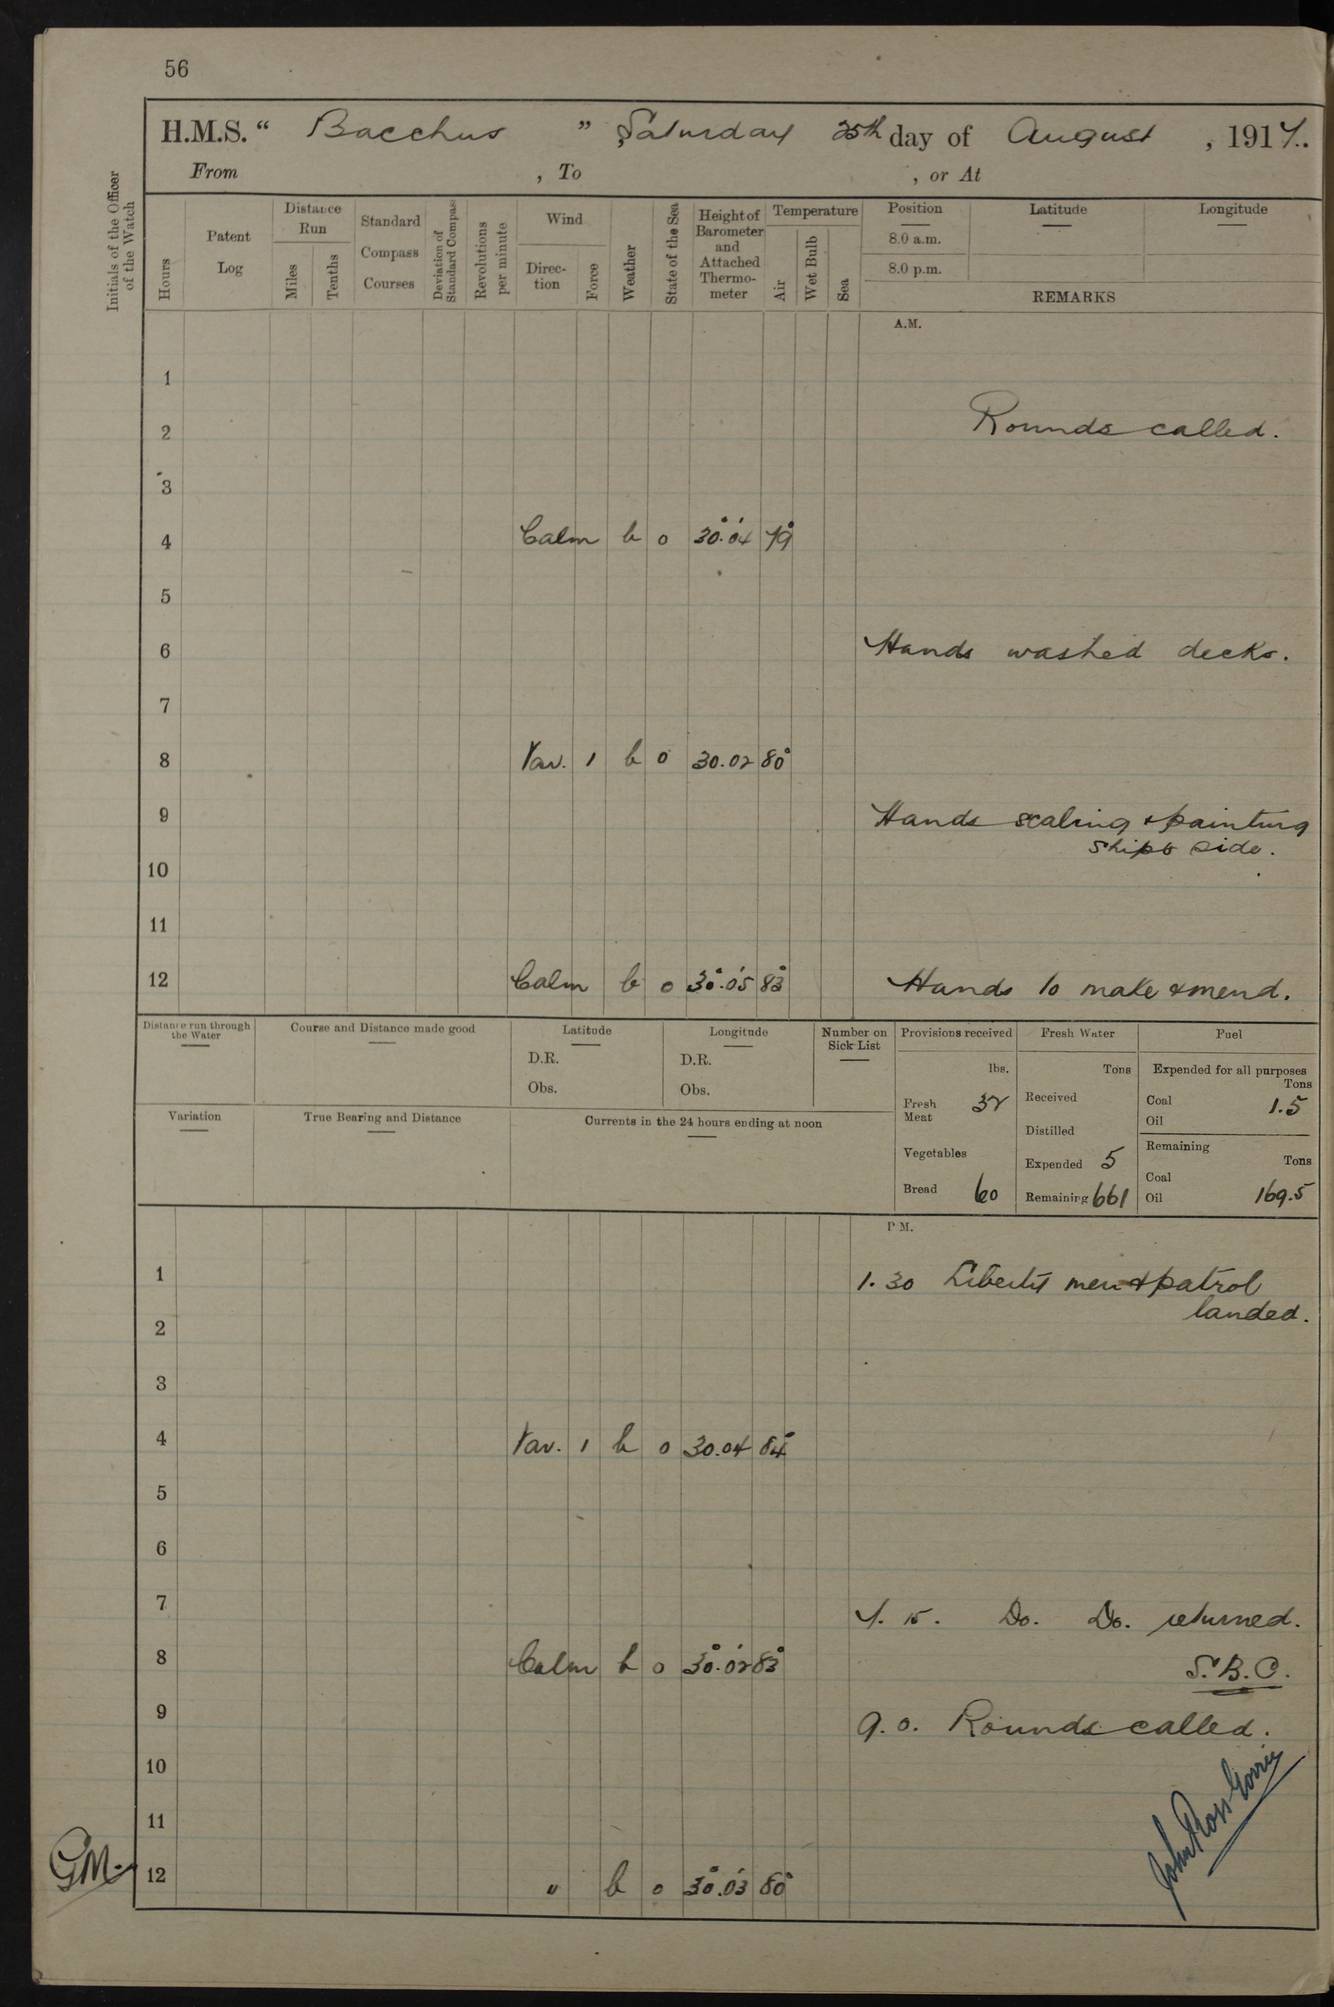 56
H.M.S. “ Bacchus ” Saturday 25th day of August , 1917.
From , To , or At
Initials of the Officer of the Watch
Hours
Patent Log
Distance Run
Miles
Tenths
Standard Compass Courses
Deviation of Standard Compass
Revolutions per minute
Wind
Direction
Force
Weather
State of the Sea
Height of Barometer and Attached Thermometer
Temperature
Air
Wet Bulb
Sea
Position Latitude Longitude
8.0 a.m.
8.0 p.m.
REMARKS
A.M.
1
2 Rounds called.
3
4 Calm b 0 30.04 79°
5
6 Hands washed decks.
7
8 Var. 1 b 0 30.02 80°
9 Hands scaling & painting
ships side.
10
11
12 Calm b 0 30.05 83° Hands to make & mend.
Distance run through the Water
Course and Distance made good
Latitude
D.R.
Obs.
Longitude
D.R.
Obs.
Number on Sick List
Variation
True Bearing and Distance
Currents in the 24 hours ending at noon
Provisions received
lbs.
Fresh Meat 32
Vegetables
Bread 60
Fresh Water
Tons
Received
Distilled
Expended 5
Remaining 661
Fuel
Expended for all purposes
Tons
Coal 1.5
Oil
Remaining
Tons
Coal
Oil 169.5
P.M.
1 1.30 Liberty men & patrol
landed.
2
3
4 Var. 1 b 0 30.04 84°
5
6
7 7.15. Do. Do. returned.
8 Calm b 0 30.02 83° S.B.C.
9 9.0. Rounds called.
10
11
John Ross Gorrie
GM. 12 " b 0 30.03 80°